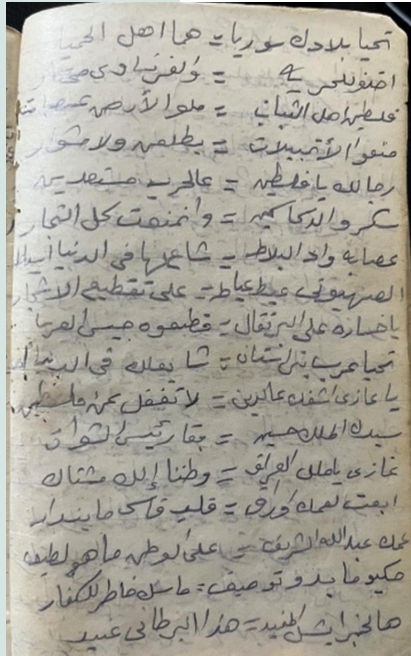 تحيا بلادك سوريا = هما اهل الحميا
= والفرنساوي
فلسطين اهل الثبات = ملو الأرض
منعو الأتمبيلات = يطلعن ولا مشوار
رجالك يا فلسطين = عالحرب مستعدين
سكرو الدكاكين = وانمنعت كل التجار
عصابه واد البلاط = شاعلها في الدنيا
الصهيوني عيط عياط = على تقطيع الاشجار
يا خساره على البرتقال = قطعوه جيس العربا
تحيا عرب = شا يعلك في
يا غازي اشفك عالدين = لا تغفل عن فلسطين
سيدك الملك حسين = بقا رئيس الثوار
غازي يا ملك العراق = وطنا إلك مشتاك
ابعت لعمك اوراق = قلب قاسي ما ينداس
عمك عبدالله الشريف = على الوطن ما هو لطيف
حكيو ما بدو توصيف = ماسك خاطر للكفار
هالخبر ايش المفيد = هذا البرطاني عنيد